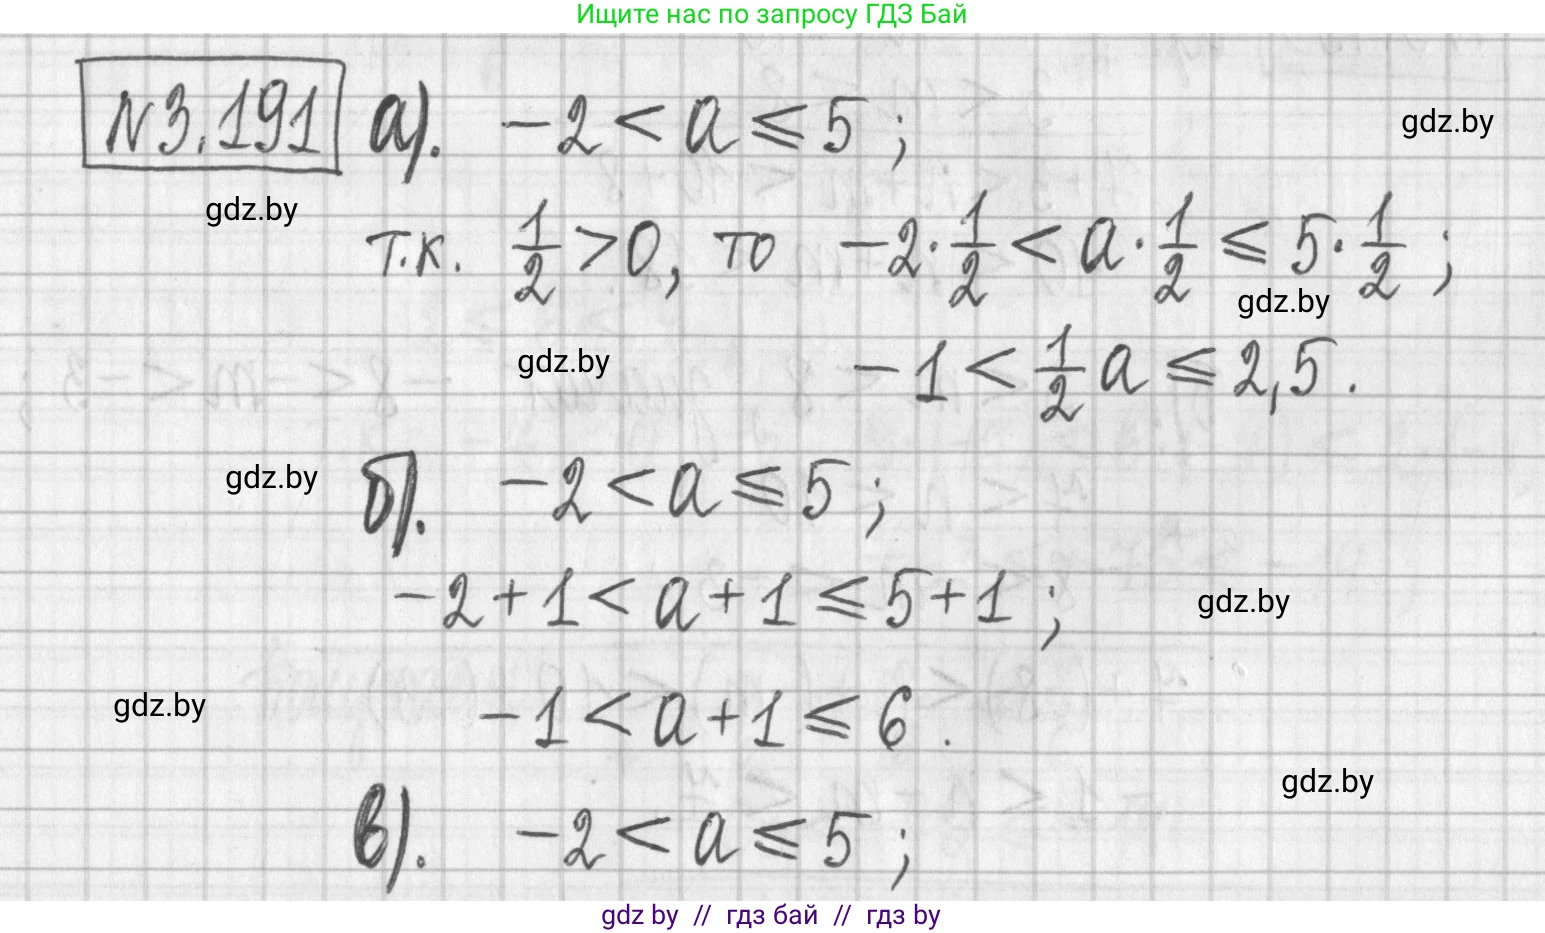 Ищите нас по запросу ГДЗ Бай
N3.191 а). -2 < a ⩽ 5 ;
gdz.by
gdz.by
т.к. 1/2 > 0, то -2·1/2 < a·1/2 ⩽ 5·1/2 ;
gdz.by
gdz.by
-1 < 1/2 a ⩽ 2,5 .
gdz.by
б). -2 < a ⩽ 5 ;
-2+1 < a+1 ⩽ 5+1 ;
gdz.by
gdz.by
-1 < a+1 ⩽ 6 .
gdz.by
в). -2 < a ⩽ 5 ;
gdz by // гдз бай // гдз by